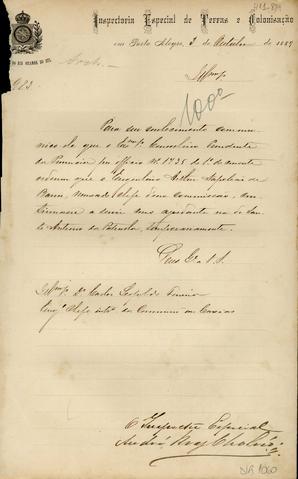 Inspectoria Especial de Terras e Colonisação
em Porto Alegre, 3 de Outubro de 1887
DO RIO GRANDE DO SUL
Arch.
Illmo
1000
Para seu conhecimento commu-
nico lhe que o Exmo Conselheiro Presidente
da Provincia em officio Nº 1738 de 1º do corrente
ordenou que o Engenheiro Arthur Napoleão de
Barros, nomeado chefe d'essa commissão, con-
tinuasse a servir como ajudante na de San-
to Antonio da Patrulha, temporariamente.
Deus Ge a V.S.
Illmo Sr Dr Carlos Leopoldo
Engº Chefe intº da Commissão em Caxias
O Inspector Especial
André